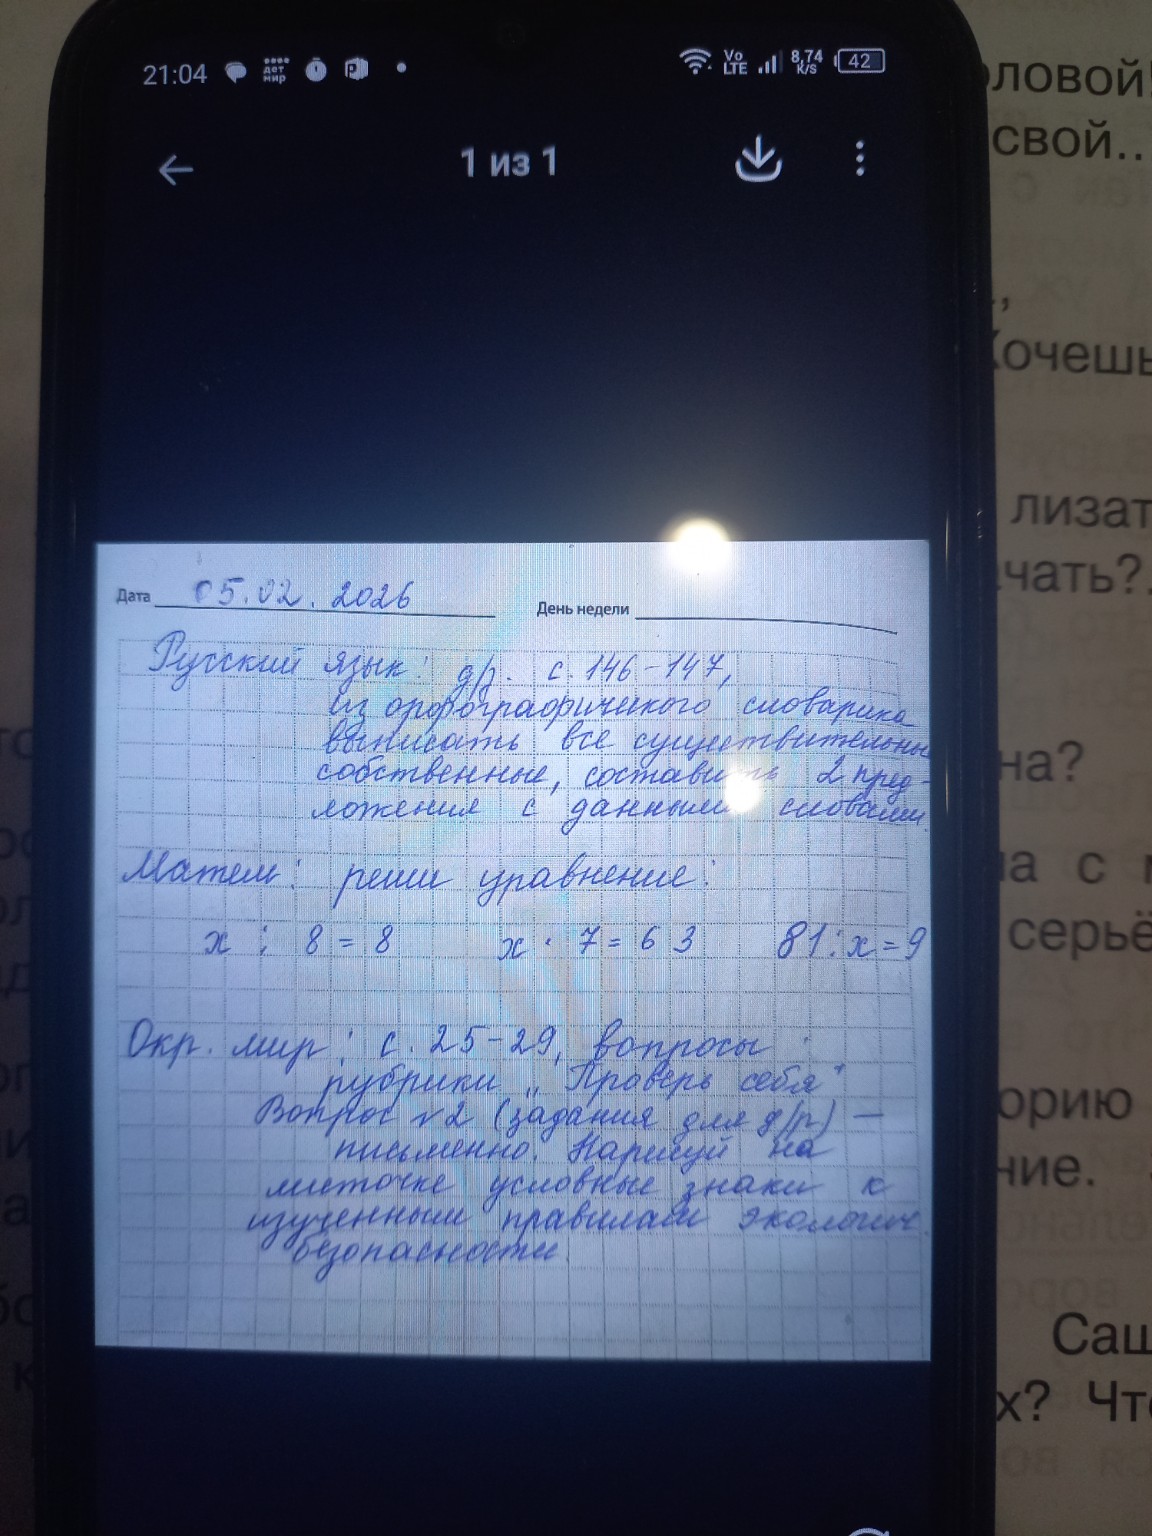 21:04
дот
мир
Vo
LTE
8,74
K/S
42
1 из 1
Дата 05.02.2026 День недели
Русский язык: д/р. с. 146-147,
из орфографического словарика
выписать все существительные
собственные, составить 2 пред-
ложения с данными словами.
Матем: реши уравнение:
х : 8 = 8 х · 7 = 63 81 : х = 9
Окр. мир: с. 25-29, вопросы
рубрики „Проверь себя"
Вопрос №2 (задания для д/р) —
письменно. Нарисуй на
листочке условные знаки к
изученным правилам экологич.
безопасности.
оловой!
свой...
Хочешь
лизат
чать?.
на?
на с
серьё
орию
ние.
Саш
х? Что